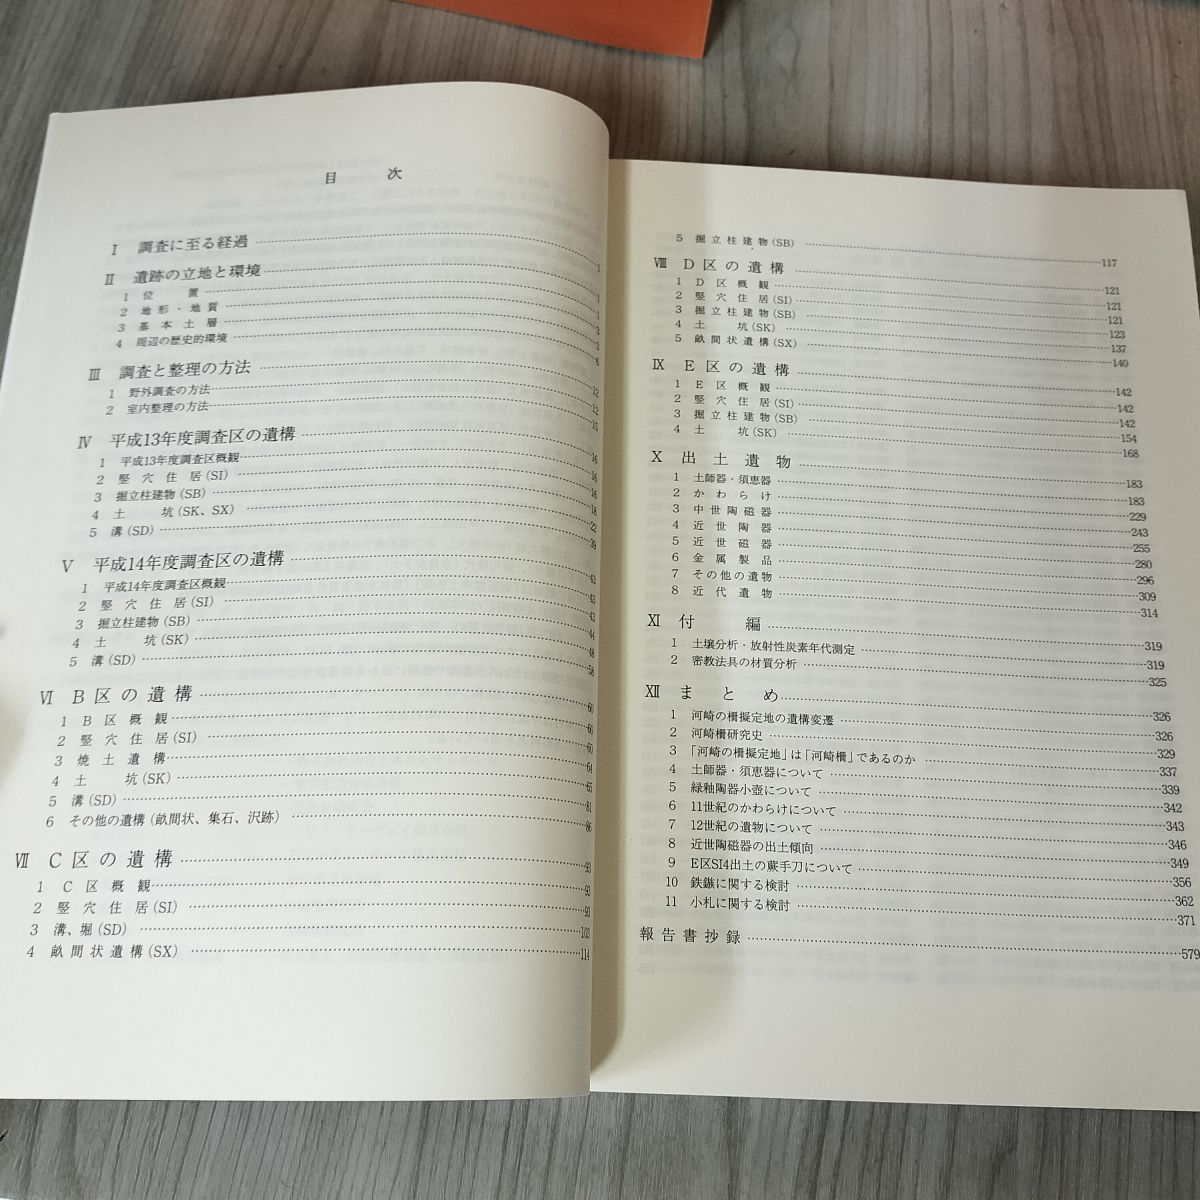 目 次
Ⅰ 調査に至る経過 1
Ⅱ 遺跡の立地と環境 1
1 位 置 1
2 地形・地質 3
3 基本土層 3
4 周辺の歴史的環境 6
Ⅲ 調査と整理の方法 12
1 野外調査の方法 12
2 室内整理の方法 15
Ⅳ 平成13年度調査区の遺構 16
1 平成13年度調査区概観 16
2 竪穴住居(SI) 16
3 掘立柱建物(SB) 18
4 土 坑(SK、SX) 22
5 溝(SD) 39
Ⅴ 平成14年度調査区の遺構 43
1 平成14年度調査区概観 43
2 竪穴住居(SI) 43
3 掘立柱建物(SB) 44
4 土 坑(SK) 48
5 溝(SD) 58
Ⅵ B区の遺構 60
1 B区概観 60
2 竪穴住居(SI) 60
3 焼土遺構 64
4 土 坑(SK) 65
5 溝(SD) 81
6 その他の遺構(畝間状、集石、沢跡) 86
Ⅶ C区の遺構 93
1 C区概観 93
2 竪穴住居(SI) 93
3 溝、堀(SD) 103
4 畝間状遺構(SX) 114
5 掘立柱建物(SB) 117
Ⅷ D区の遺構 121
1 D区概観 121
2 竪穴住居(SI) 121
3 掘立柱建物(SB) 123
4 土 坑(SK) 137
5 畝間状遺構(SX) 140
Ⅸ E区の遺構 142
1 E区概観 142
2 竪穴住居(SI) 142
3 掘立柱建物(SB) 154
4 土 坑(SK) 168
Ⅹ 出土遺物 183
1 土師器・須恵器 183
2 かわらけ 229
3 中世陶磁器 243
4 近世陶器 255
5 近世磁器 280
6 金属製品 296
7 その他の遺物 309
8 近代遺物 314
Ⅺ 付 編 319
1 土壌分析・放射性炭素年代測定 319
2 密教法具の材質分析 325
Ⅻ まとめ 326
1 河崎の柵擬定地の遺構変遷 326
2 河崎柵研究史 329
3 「河崎の柵擬定地」は「河崎柵」であるのか 337
4 土師器・須恵器について 339
5 緑釉陶器小壺について 342
6 11世紀のかわらけについて 343
7 12世紀の遺物について 346
8 近世陶磁器の出土傾向 349
9 E区SI4出土の蕨手刀について 356
10 鉄鏃に関する検討 362
11 小札に関する検討 371
報告書抄録 579